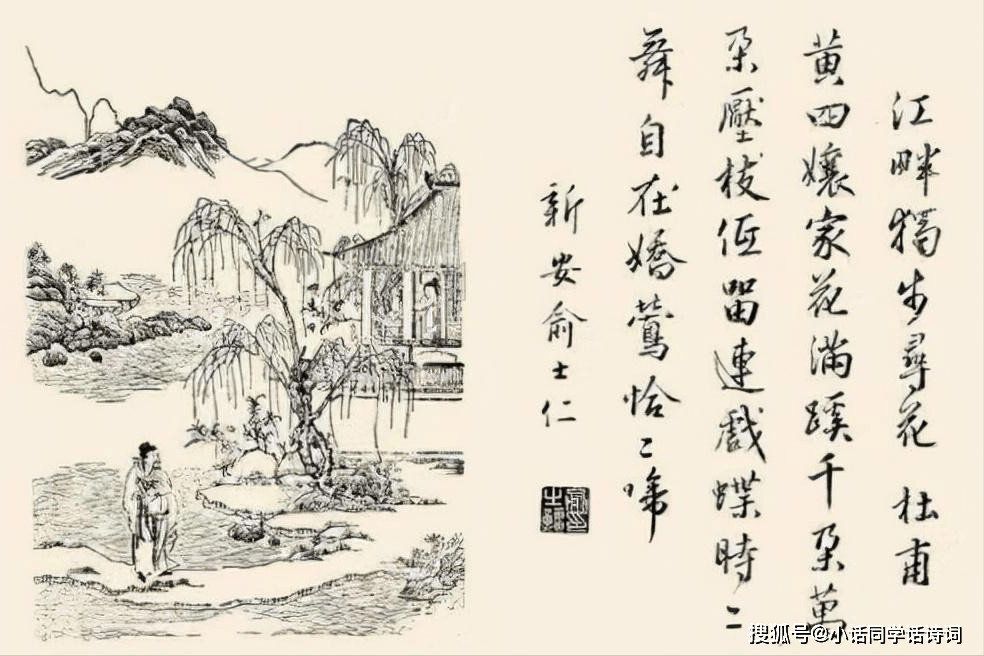 江畔獨步尋花 杜甫
黄四孃家花滿蹊千朶萬
朶壓枝低留連戲蝶時〻
舞自在嬌鶯恰〻啼
新安俞士仁
搜狐号@小话同学话诗词